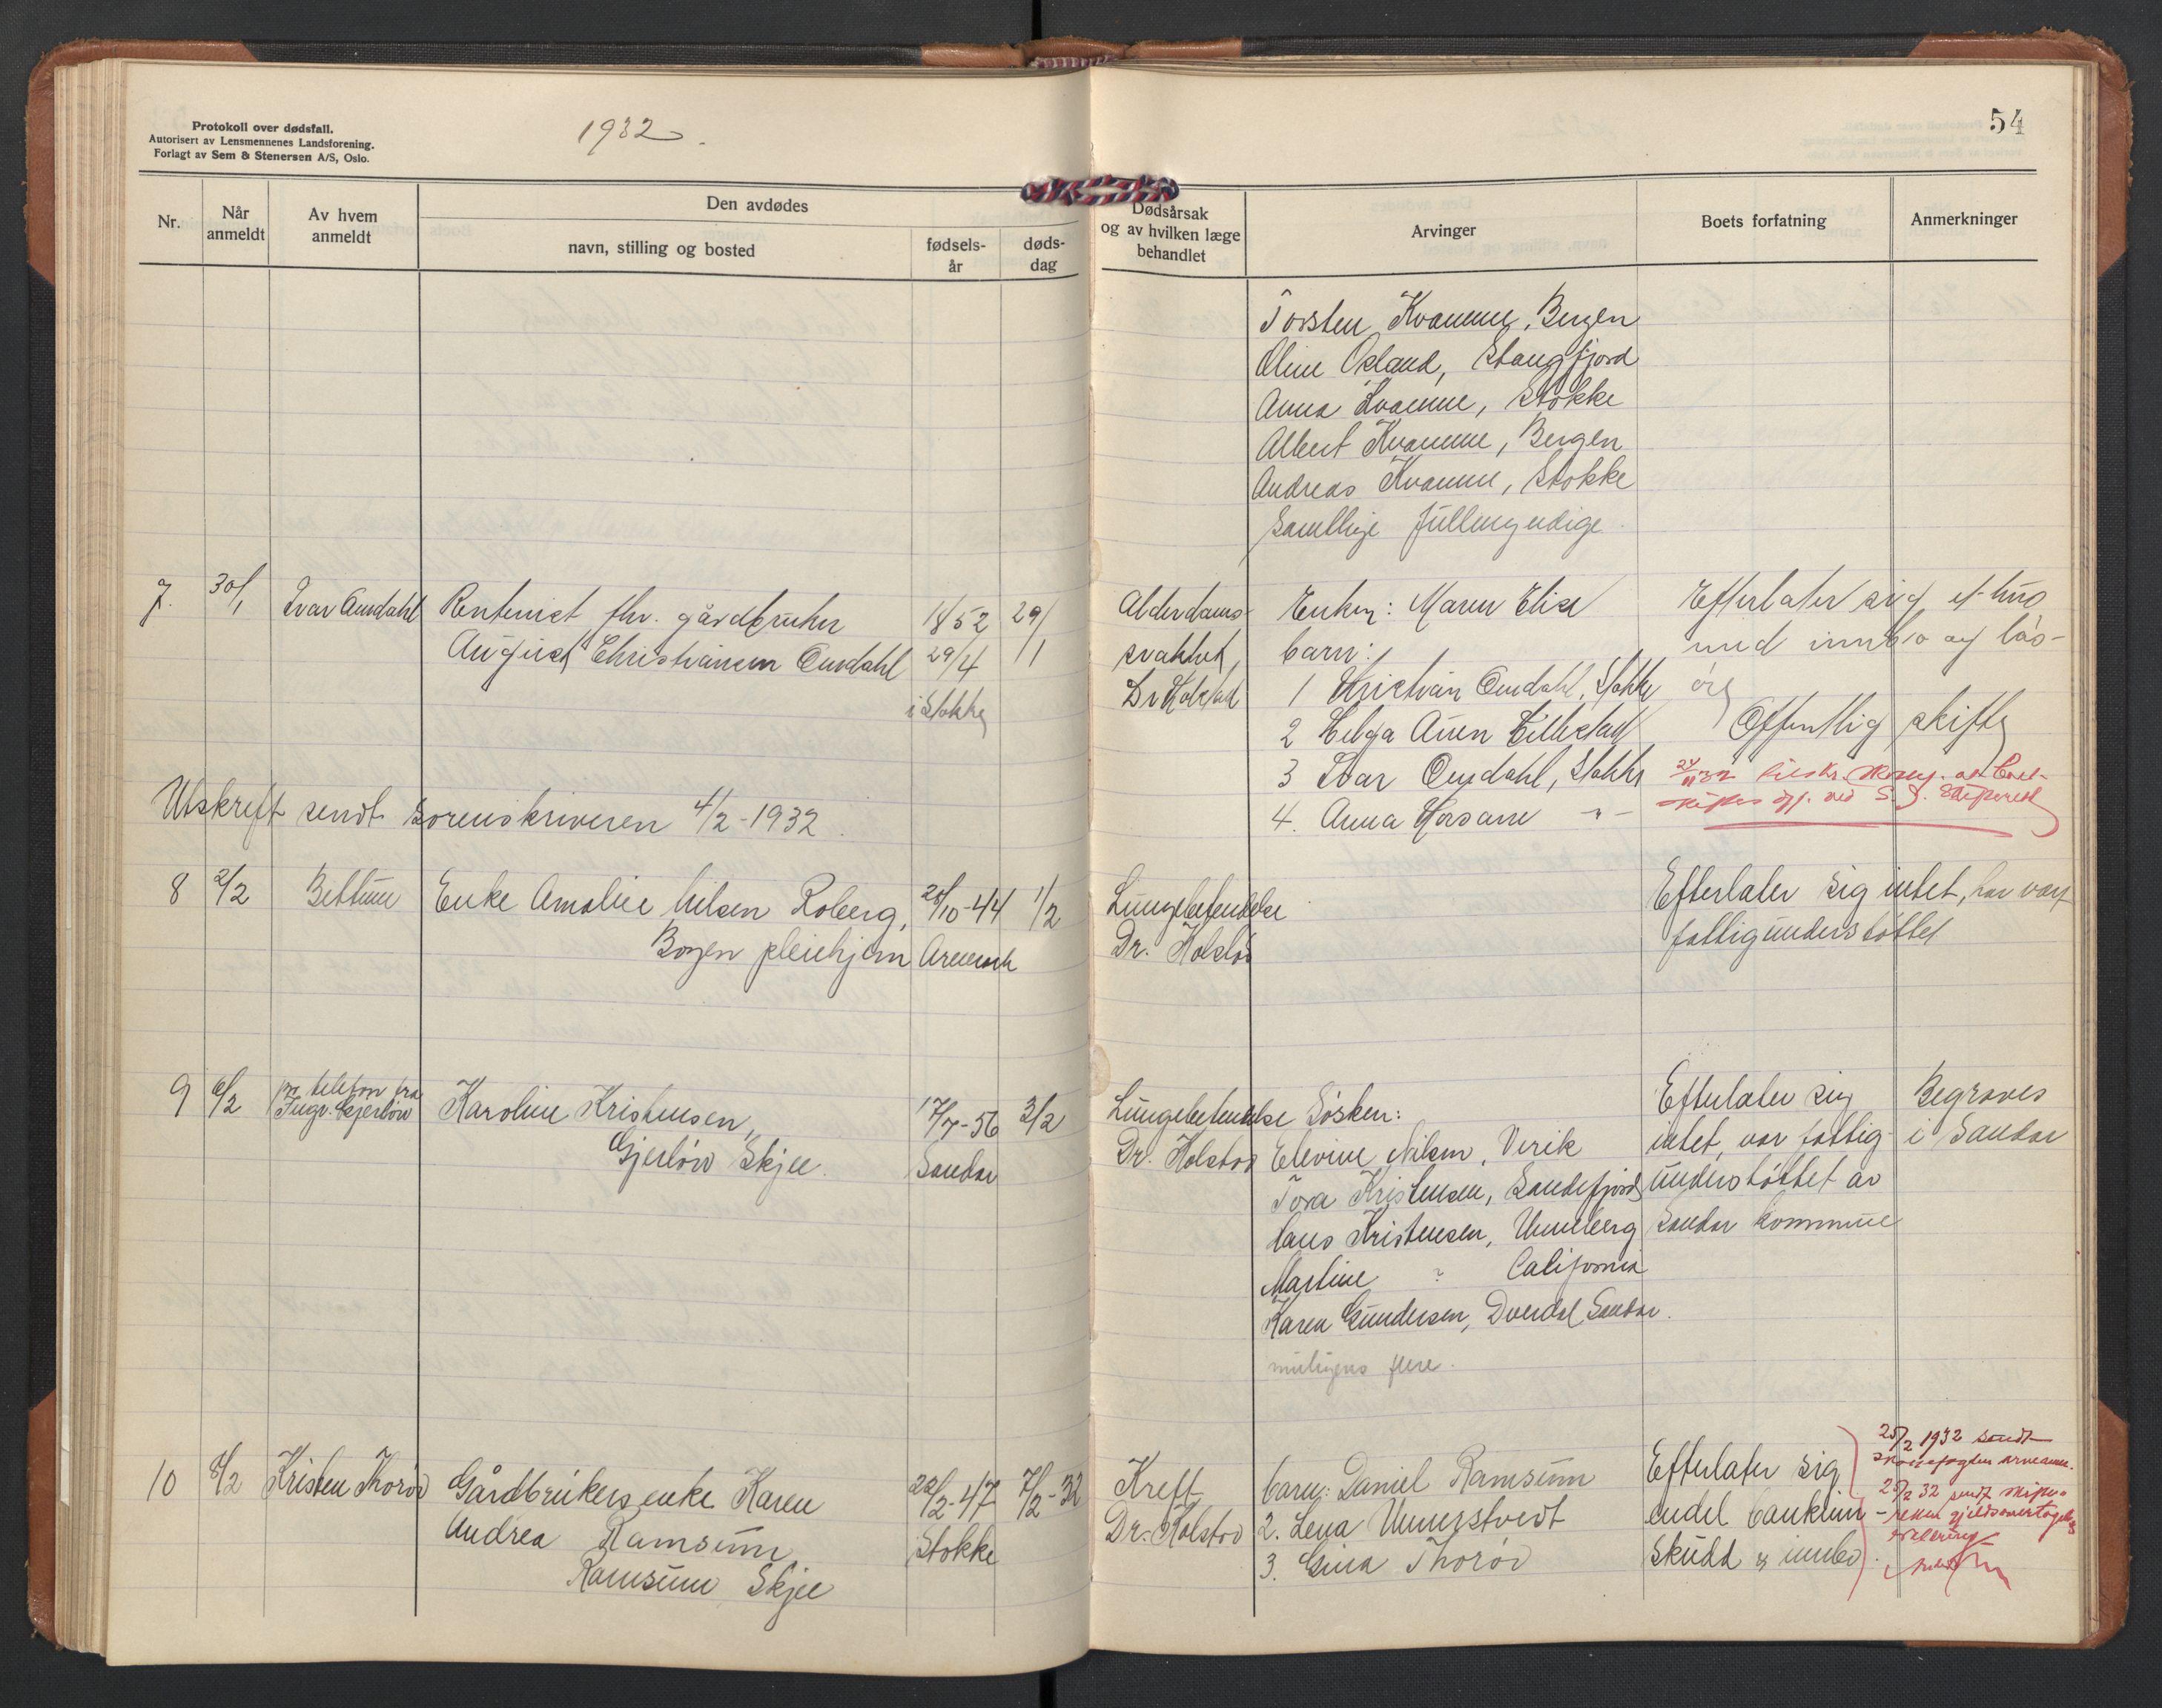 Protokoll over dødsfall.
Autorisert av Lensmennenes Landsforening.
Forlagt av Sem & Stenersen A/S, Oslo.
1932
54
Nr.
Når anmeldt
Av hvem anmeldt
Den avdødes
navn, stilling og bosted
fødsels-år
døds-dag
Dødsårsak og av hvilken læge behandlet
Arvinger
Boets forfatning
Anmerkninger
Torsten Kvamme, Bergen
Oline Oxland, Stangfjord
Anna Kvamme, Stokke
Albert Kvamme, Bergen
Andreas Kvamme, Stokke
Samtlige fullmyndige
7. 30/1 Ivar Omdahl
Rentenist fhv. gårdbruker
August Christiansen Omdahl
1852
29/4
i Stokke
29/1
Alderdoms-
svakhet,
Dr Holstad
Enken: Maren Elise
barn:
1 Kristian Omdahl, Stokke
2 Helga Auen Tillestad
3 Ivar Omdahl, Stokke
4. Anna Horsane - " -
Efterlater sig et hus
med innbo og løs-
øre
Offentlig skifte
Utskrift sendt sorenskriveren 4/2-1932.
8 2/2 Bettum
Enke Amalie Nilsen Roberg,
Borgen pleiehjem
28/10-44
1/2
Lungebetendelse
Dr. Holstad
Efterlater sig intet, har vært
fattigunderstøttet
9 6/2 pr. telefon fra
Ingv. Gjerløw
Karoline Kristensen,
Gjerløw Skjee.
17/7-56
Sandar
3/2
Lungebetendelse
Dr. Holstad
Søsken:
Elevine Nilsen, Virik
Tora Kristensen, Sandefjord
Hans Kristensen, Unneberg
Martine " California
Karen Gundersen, Dverdal Sandar.
muligens flere.
Efterlater sig
intet, var fattig-
understøttet av
Sandar kommune
Begraves
i Sandar
10 8/2 Kristen Thorød
Gårdbrukers enke Karen
Andrea Ramsum
Ramsum Skjee
22/2-47
Stokke
7/2-32
Kreft
Dr. Holstad
barn: Daniel Ramsum
2. Lena Unnerstvedt
3. Gina Thorød
Efterlater sig
endel bankinn-
skudd og innbo.
25/2 1932 sendt
25/2 32 sendt skifte-
retten gjeldsovertagelse